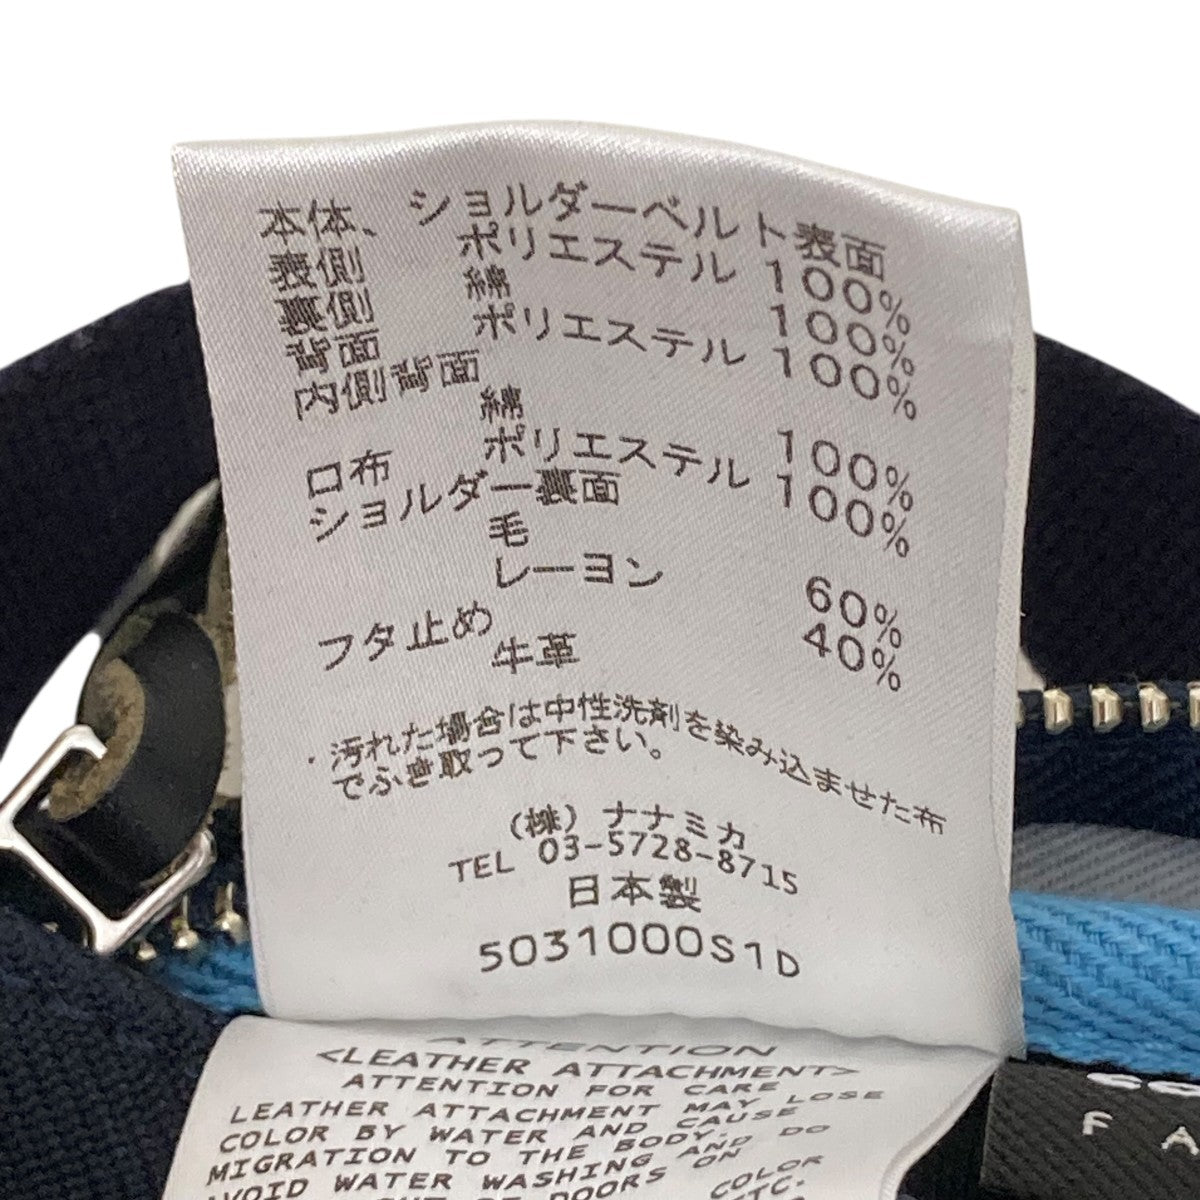 本体、ショルダーベルト表面
表側 ポリエステル 100%
裏側 綿 100%
背面 ポリエステル 100%
内側背面
綿 100%
口布 ポリエステル 100%
ショルダー裏面
毛 60%
レーヨン 40%
フタ止め
牛革
・汚れた場合は中性洗剤を染み込ませた布
でふき取って下さい。
(株) ナナミカ
TEL 03-5728-8715
日本製
5031000S1D
ATTENTION
<LEATHER ATTACHMENT>
ATTENTION FOR CARE
LEATHER ATTACHMENT MAY LOSE
COLOR BY WATER AND CAUSE
MIGRATION TO THE BODY.
AVOID WATER WASHING AND DO
OUT OF DOORS ON
COLOR
ETC.
F A